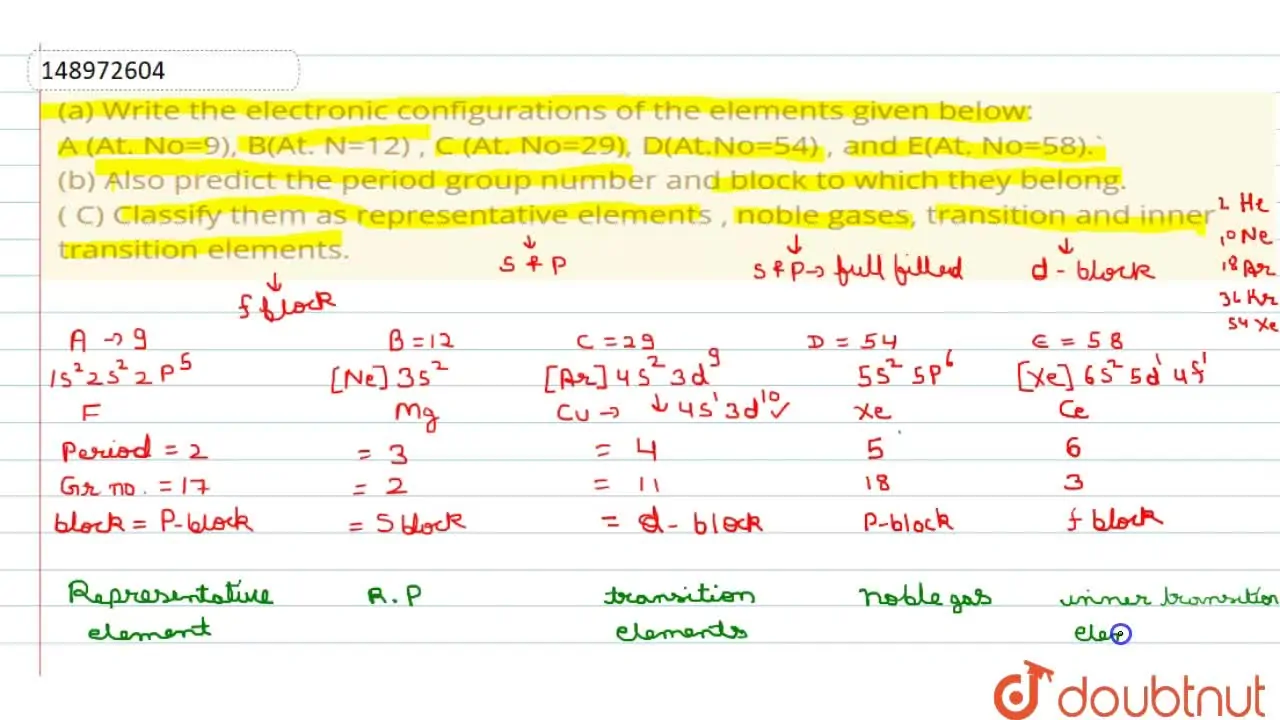 148972604
(a) Write the electronic configurations of the elements given below:
A (At. No=9), B(At. N=12) , C (At. No=29), D(At.No=54) , and E(At. No=58).`
(b) Also predict the period group number and block to which they belong.
( C) Classify them as representative elements , noble gases, transition and inner
transition elements.
2 He
10 Ne
18 Ar
36 Kr
54 Xe
↓ ↓ ↓
S & P S & P → full filled d - block
↓
f block
A → 9 B = 12 C = 29 D = 54 E = 58
1s² 2s² 2p⁵ [Ne] 3s² [Ar] 4s² 3d⁹ 5s² 5p⁶ [Xe] 6s² 5d¹ 4f¹
F Mg Cu → ↓ 4s¹ 3d¹⁰ ✓ Xe Ce
Period = 2 = 3 = 4 5 6
Gr no. = 17 = 2 = 11 18 3
block = P-block = S block = d - block P-block f block
Representative R.P transition noble gas inner transition
element elements ele
doubtnut